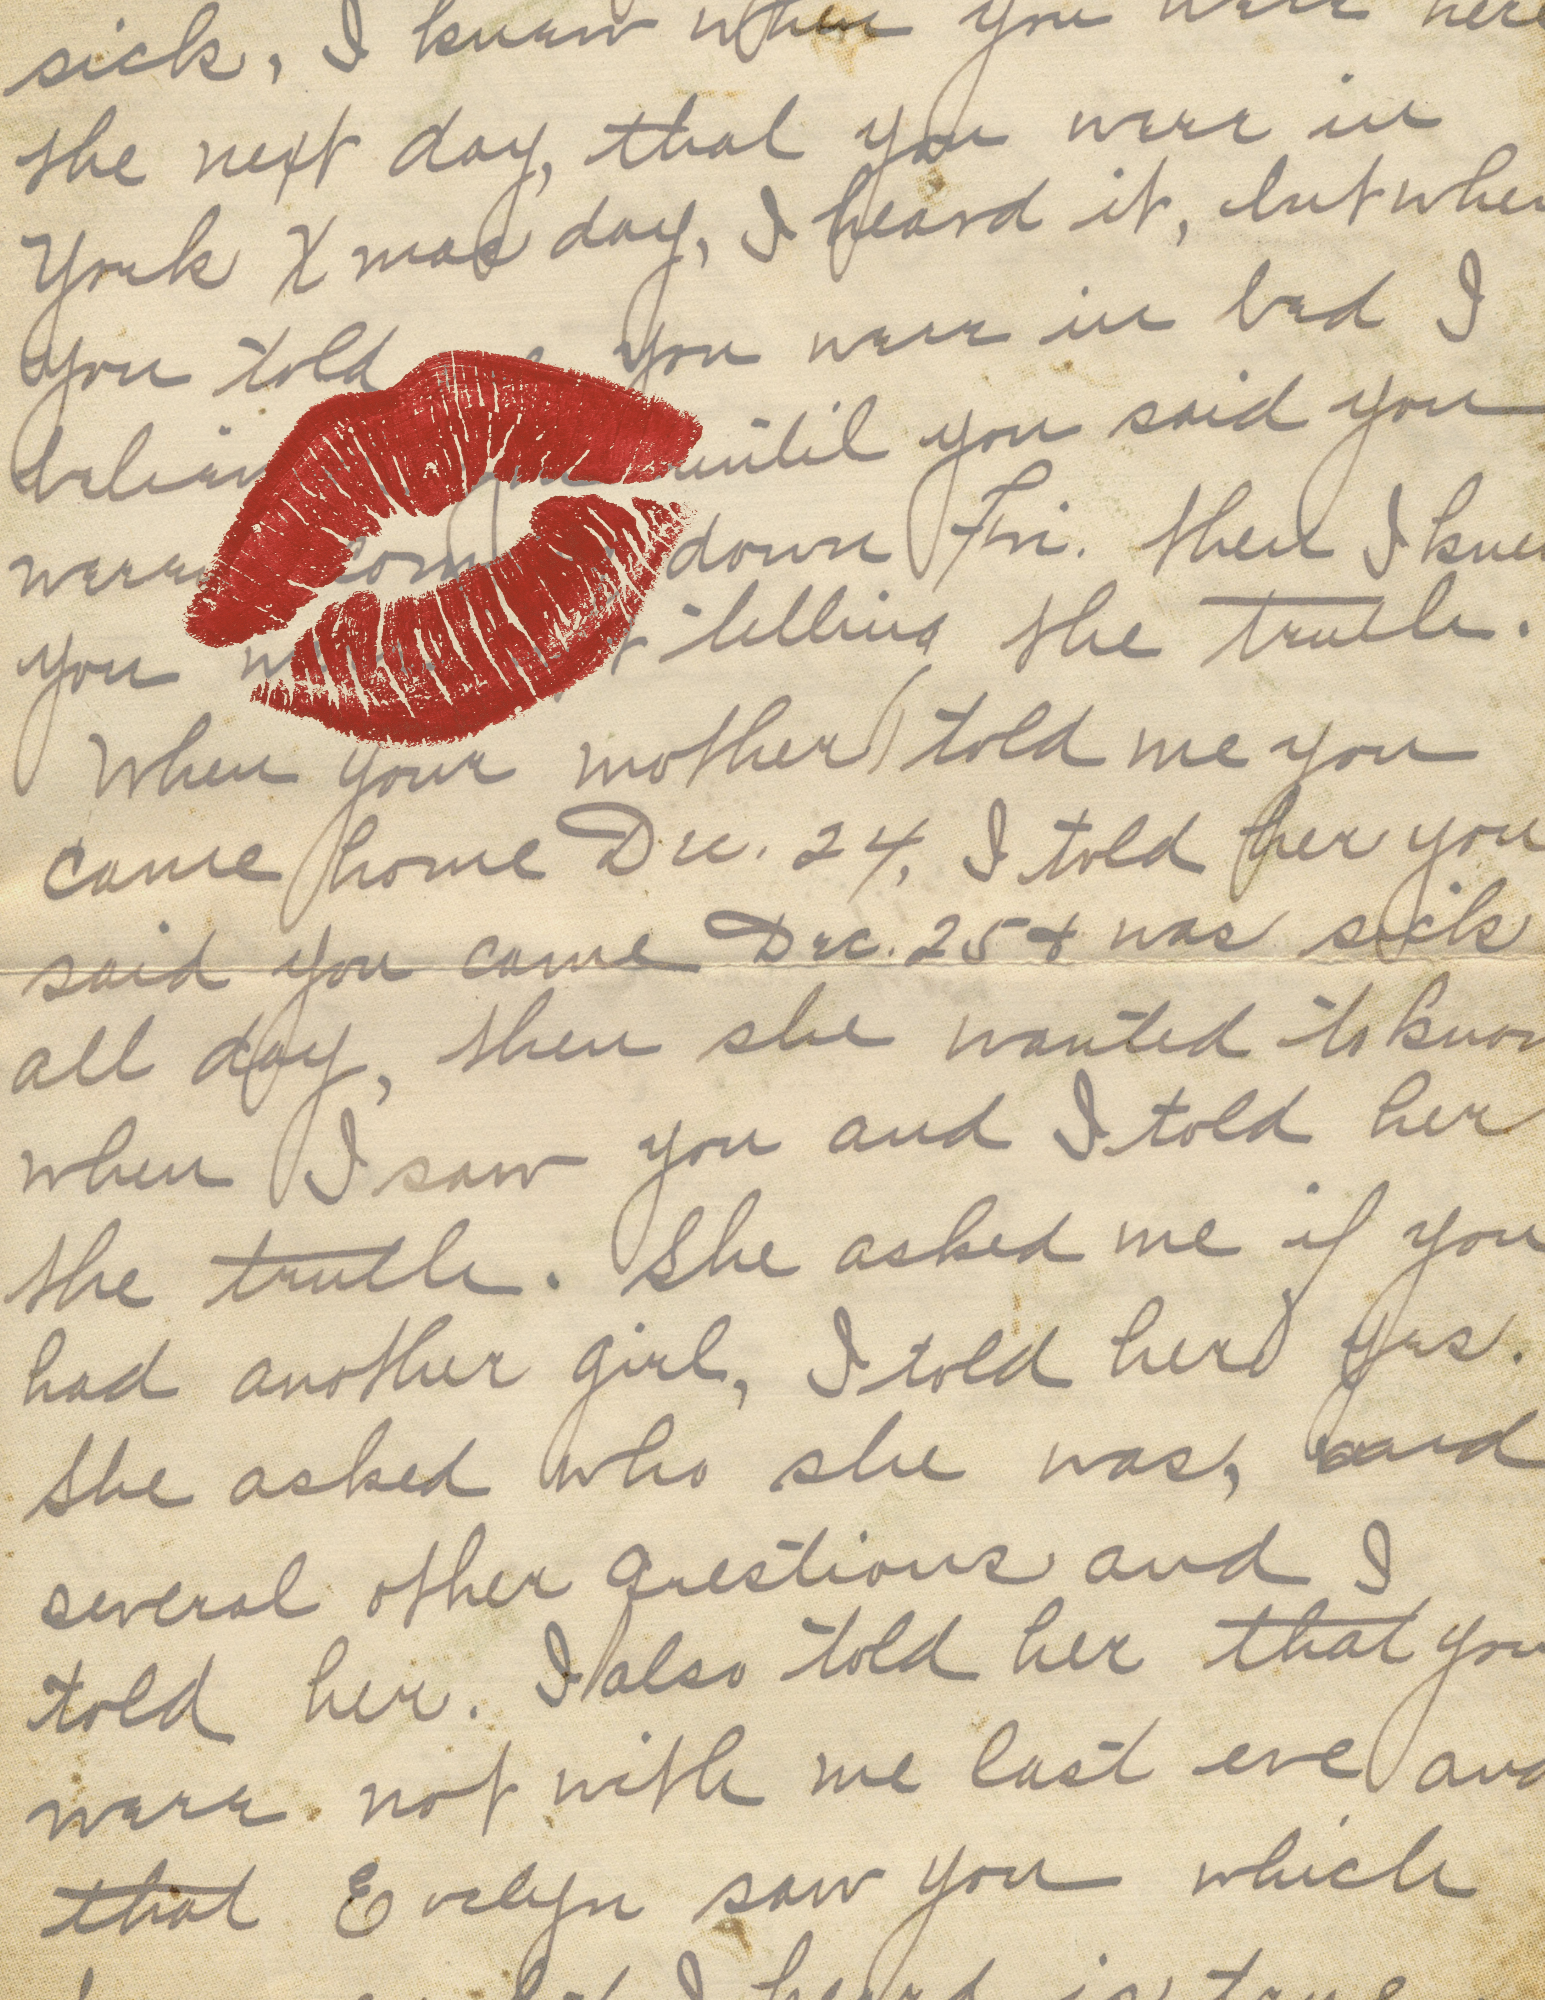 sick, I knew when you were here
the next day, that you were in
York Xmas day, I heard it, but when
you told you were in bed I
until you said you
were down Fri. then I knew
you telling the truth.
When your mother told me you
came home Dec. 24, I told her you
said you came Dec. 25 & was sick
all day, then she wanted to know
when I saw you and I told her
the truth. She asked me if you
had another girl, I told her yes.
She asked who she was, and
several other questions and I
told her. I also told her that you
were not with me last eve and
that Evelyn saw you which
I heard is true